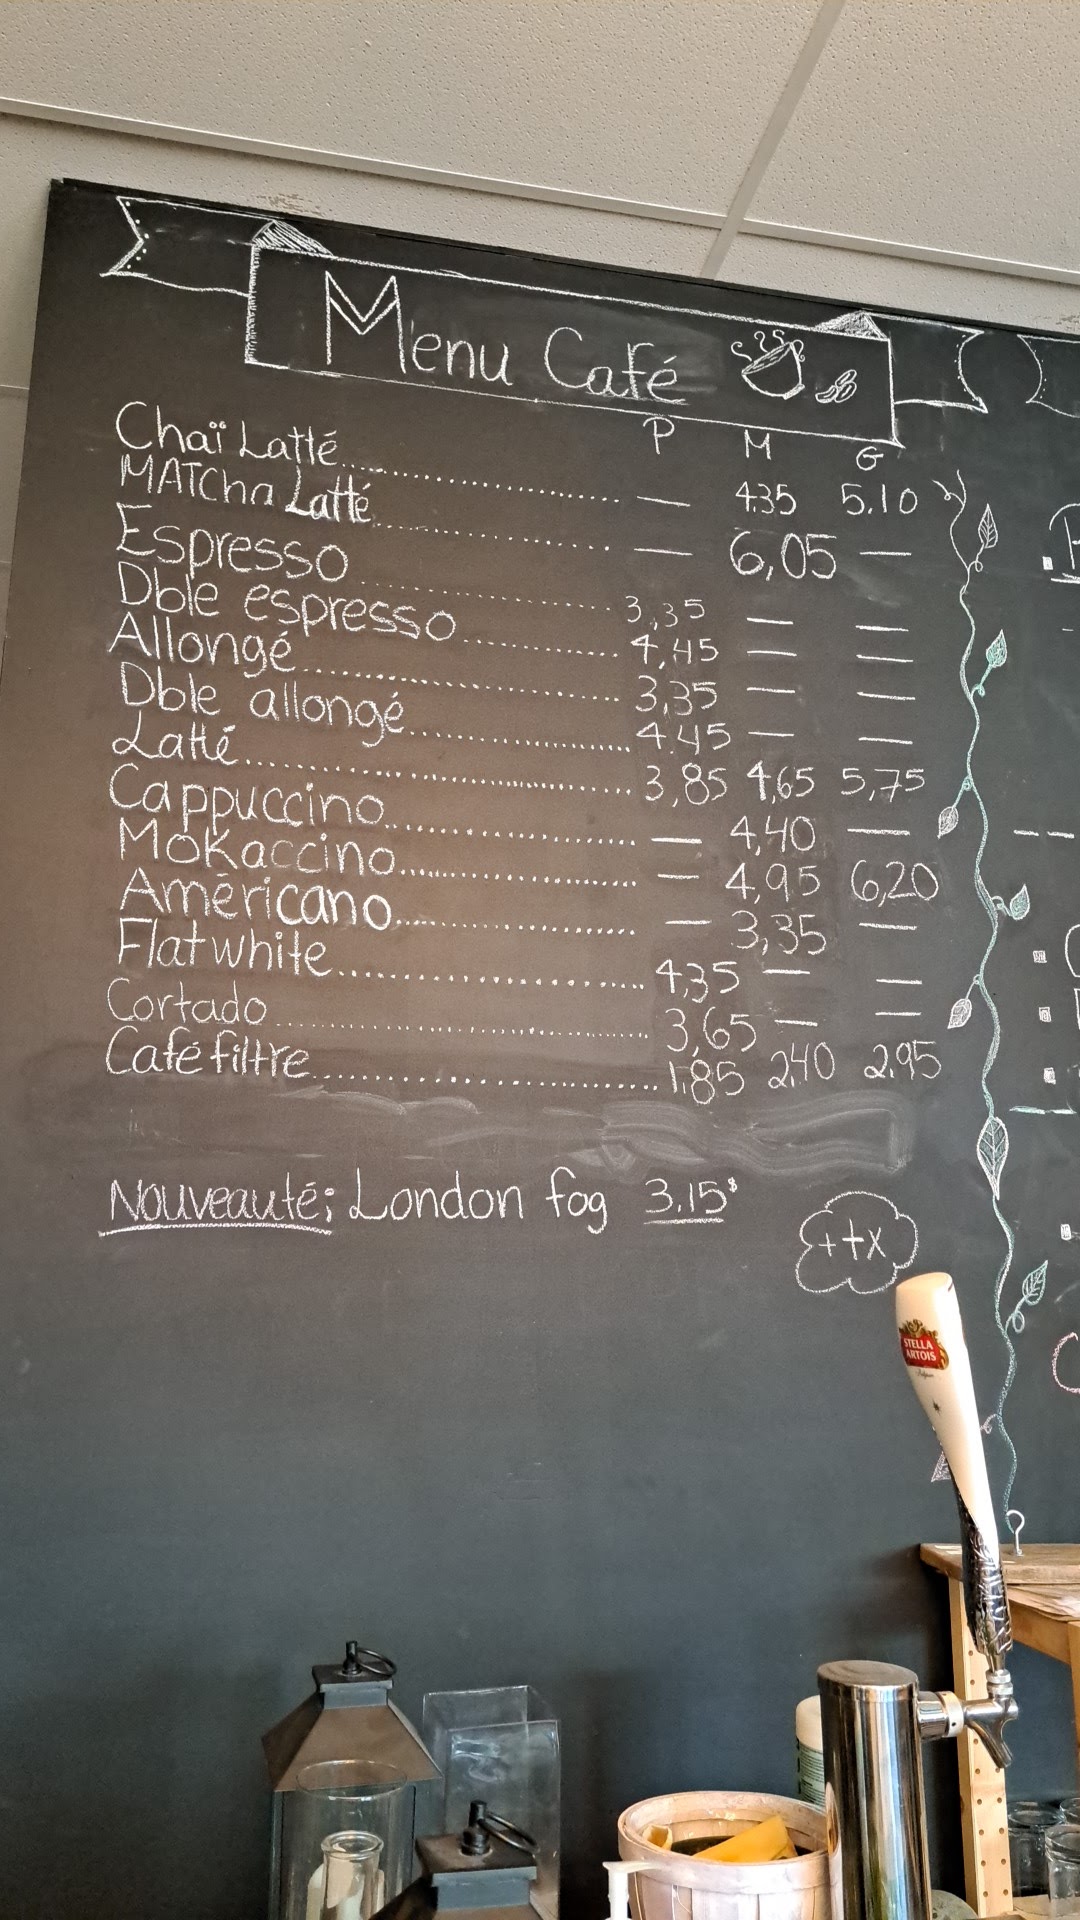 Menu Café
P M G
Chaï Latté ........ — 4.35 5.10
MATCha Latté ........ — 6,05 —
Espresso ........ 3,35 — —
Dble espresso ........ 4,45 — —
Allongé ........ 3,35 — —
Dble allongé ........ 4.45 — —
Latté ........ 3,85 4,65 5,75
Cappuccino ........ — 4,40 —
Mokaccino ........ — 4,95 6,20
Américano ........ — 3,35 —
Flat white ........ 4,35 — —
Cortado ........ 3,65 — —
Café filtre ........ 1.85 2.40 2.95
Nouveauté; London fog 3.15$
+tx
STELLA
ARTOIS